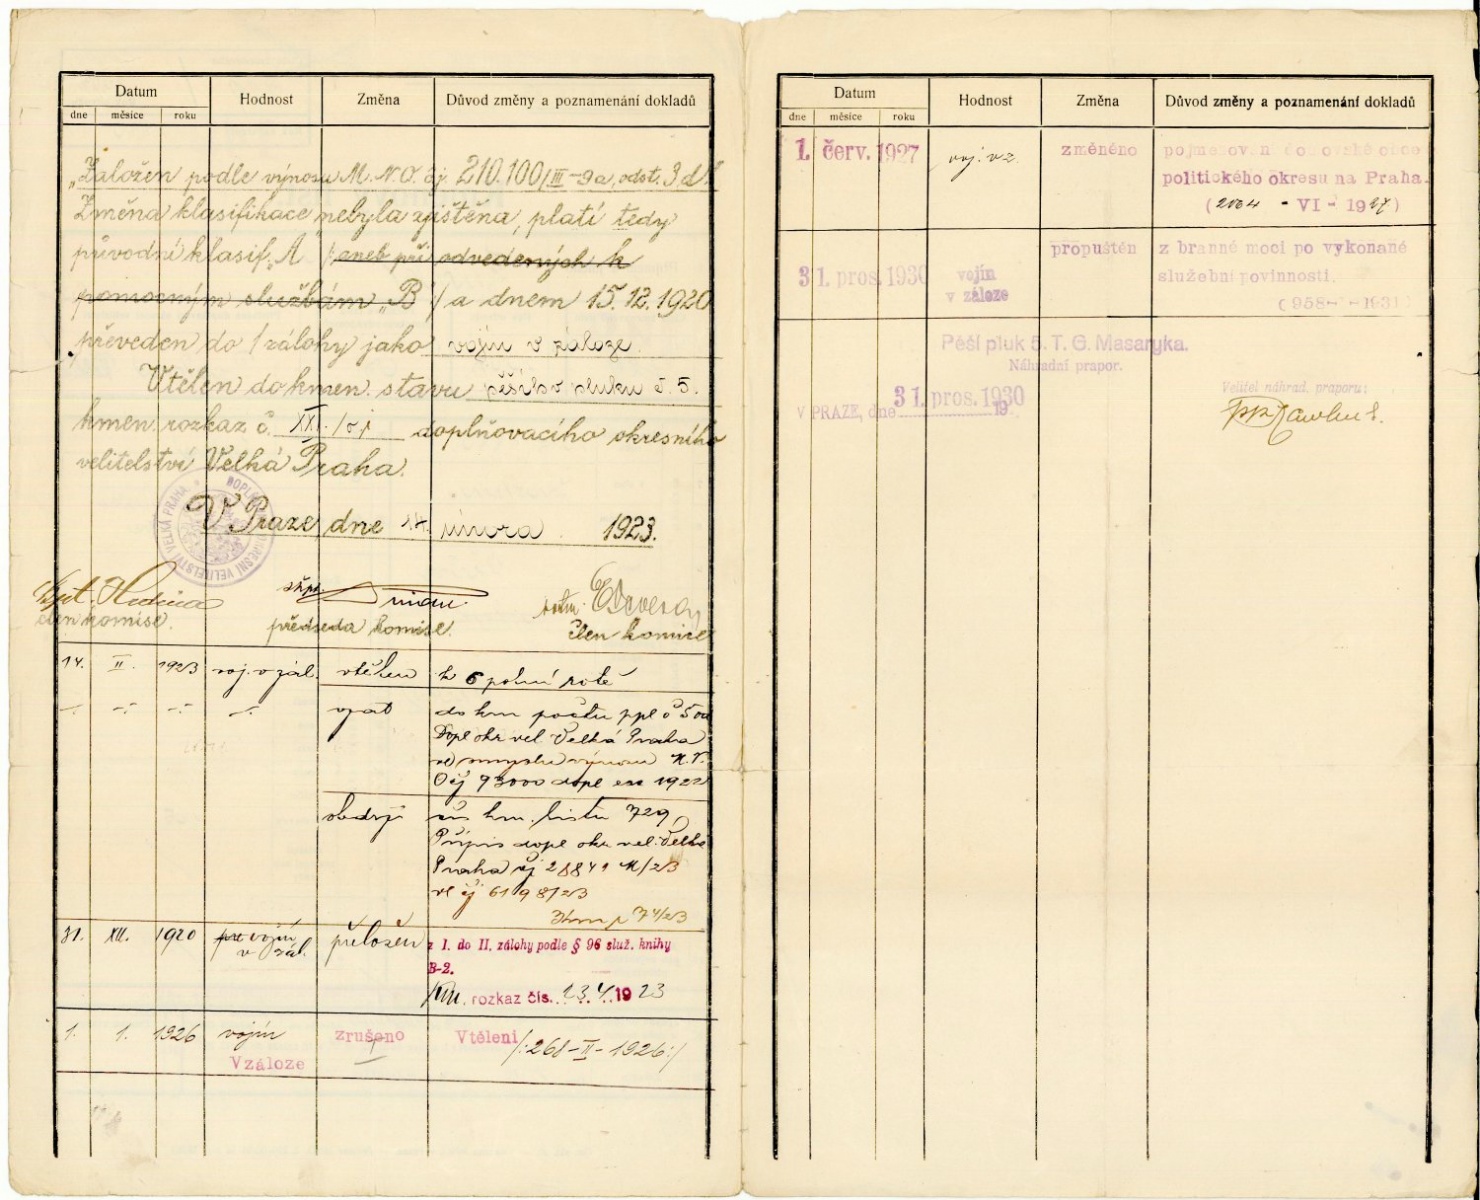 Datum Hodnost Změna Důvod změny a poznamenání dokladů
dne měsíce roku
„Založen podle výnosu M.N.O. čj 210.100/III-9a, odst. 3,d"
Změna klasifikace nebyla zjištěna, platí tedy
původní klasif. „A" /aneb při odvedených k
pomocným službám „B"/ a dnem 15.12.1920
převeden do I zálohy jako vojín v záloze.
Vtělen do kmen. stavu pěšího pluku č. 5.
kmen. rozkaz č. XXI. doplňovacího okresního
velitelství Velká Praha.
V Praze dne 14. února 1923.
člen komise. předseda komise. člen komise
14. II. 1923 voj. v zál. vtělen k 6 polní rotě
vzat do km počtu ppl č 5 od
Dopl okr vel Velká Praha
ve smyslu výnosu M.N.
O čj 93000 dopl 1922
obdrží čís km. listu 729
Přípis dopl okr vel. Velká
Praha čj 28841 M/23
vl čj 6198/23
31. XII. 1920 vojín v zál. přeložen z I. do II. zálohy podle § 96 služ. knihy
B-2.
Km. rozkaz čís. 23.4.1923
1. 1. 1926 vojín zrušeno Vtěleni /:268-II-1926:/
V záloze
Datum Hodnost Změna Důvod změny a poznamenání dokladů
dne měsíce roku
1. červ. 1927 voj. v z. změněno pojmenov. n domovské obce
politického okresu na Praha.
(2064 - VI - 1927)
propuštěn z branné moci po vykonané
31. pros. 1930 vojín služební povinnosti.
v záloze (958-I-1931)
Pěší pluk 5. T. G. Masaryka.
Náhradní prapor.
V PRAZE, dne 31. pros. 1930 19
Velitel náhrad. praporu: